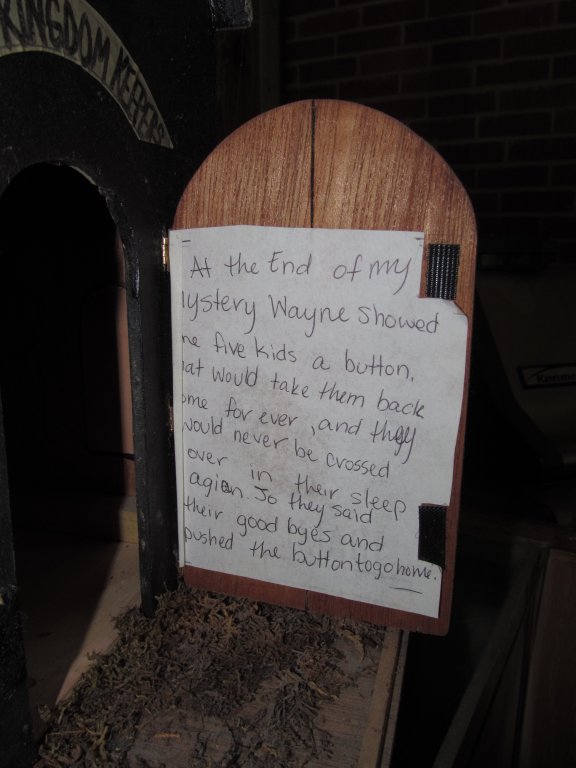 KINGDOM KEEPERS
At the End of my
ystery Wayne showed
he five kids a button,
hat would take them back
ome for ever, and they
would never be crossed
over in their sleep
agian. So they said
their good byes and
pushed the button to go home.